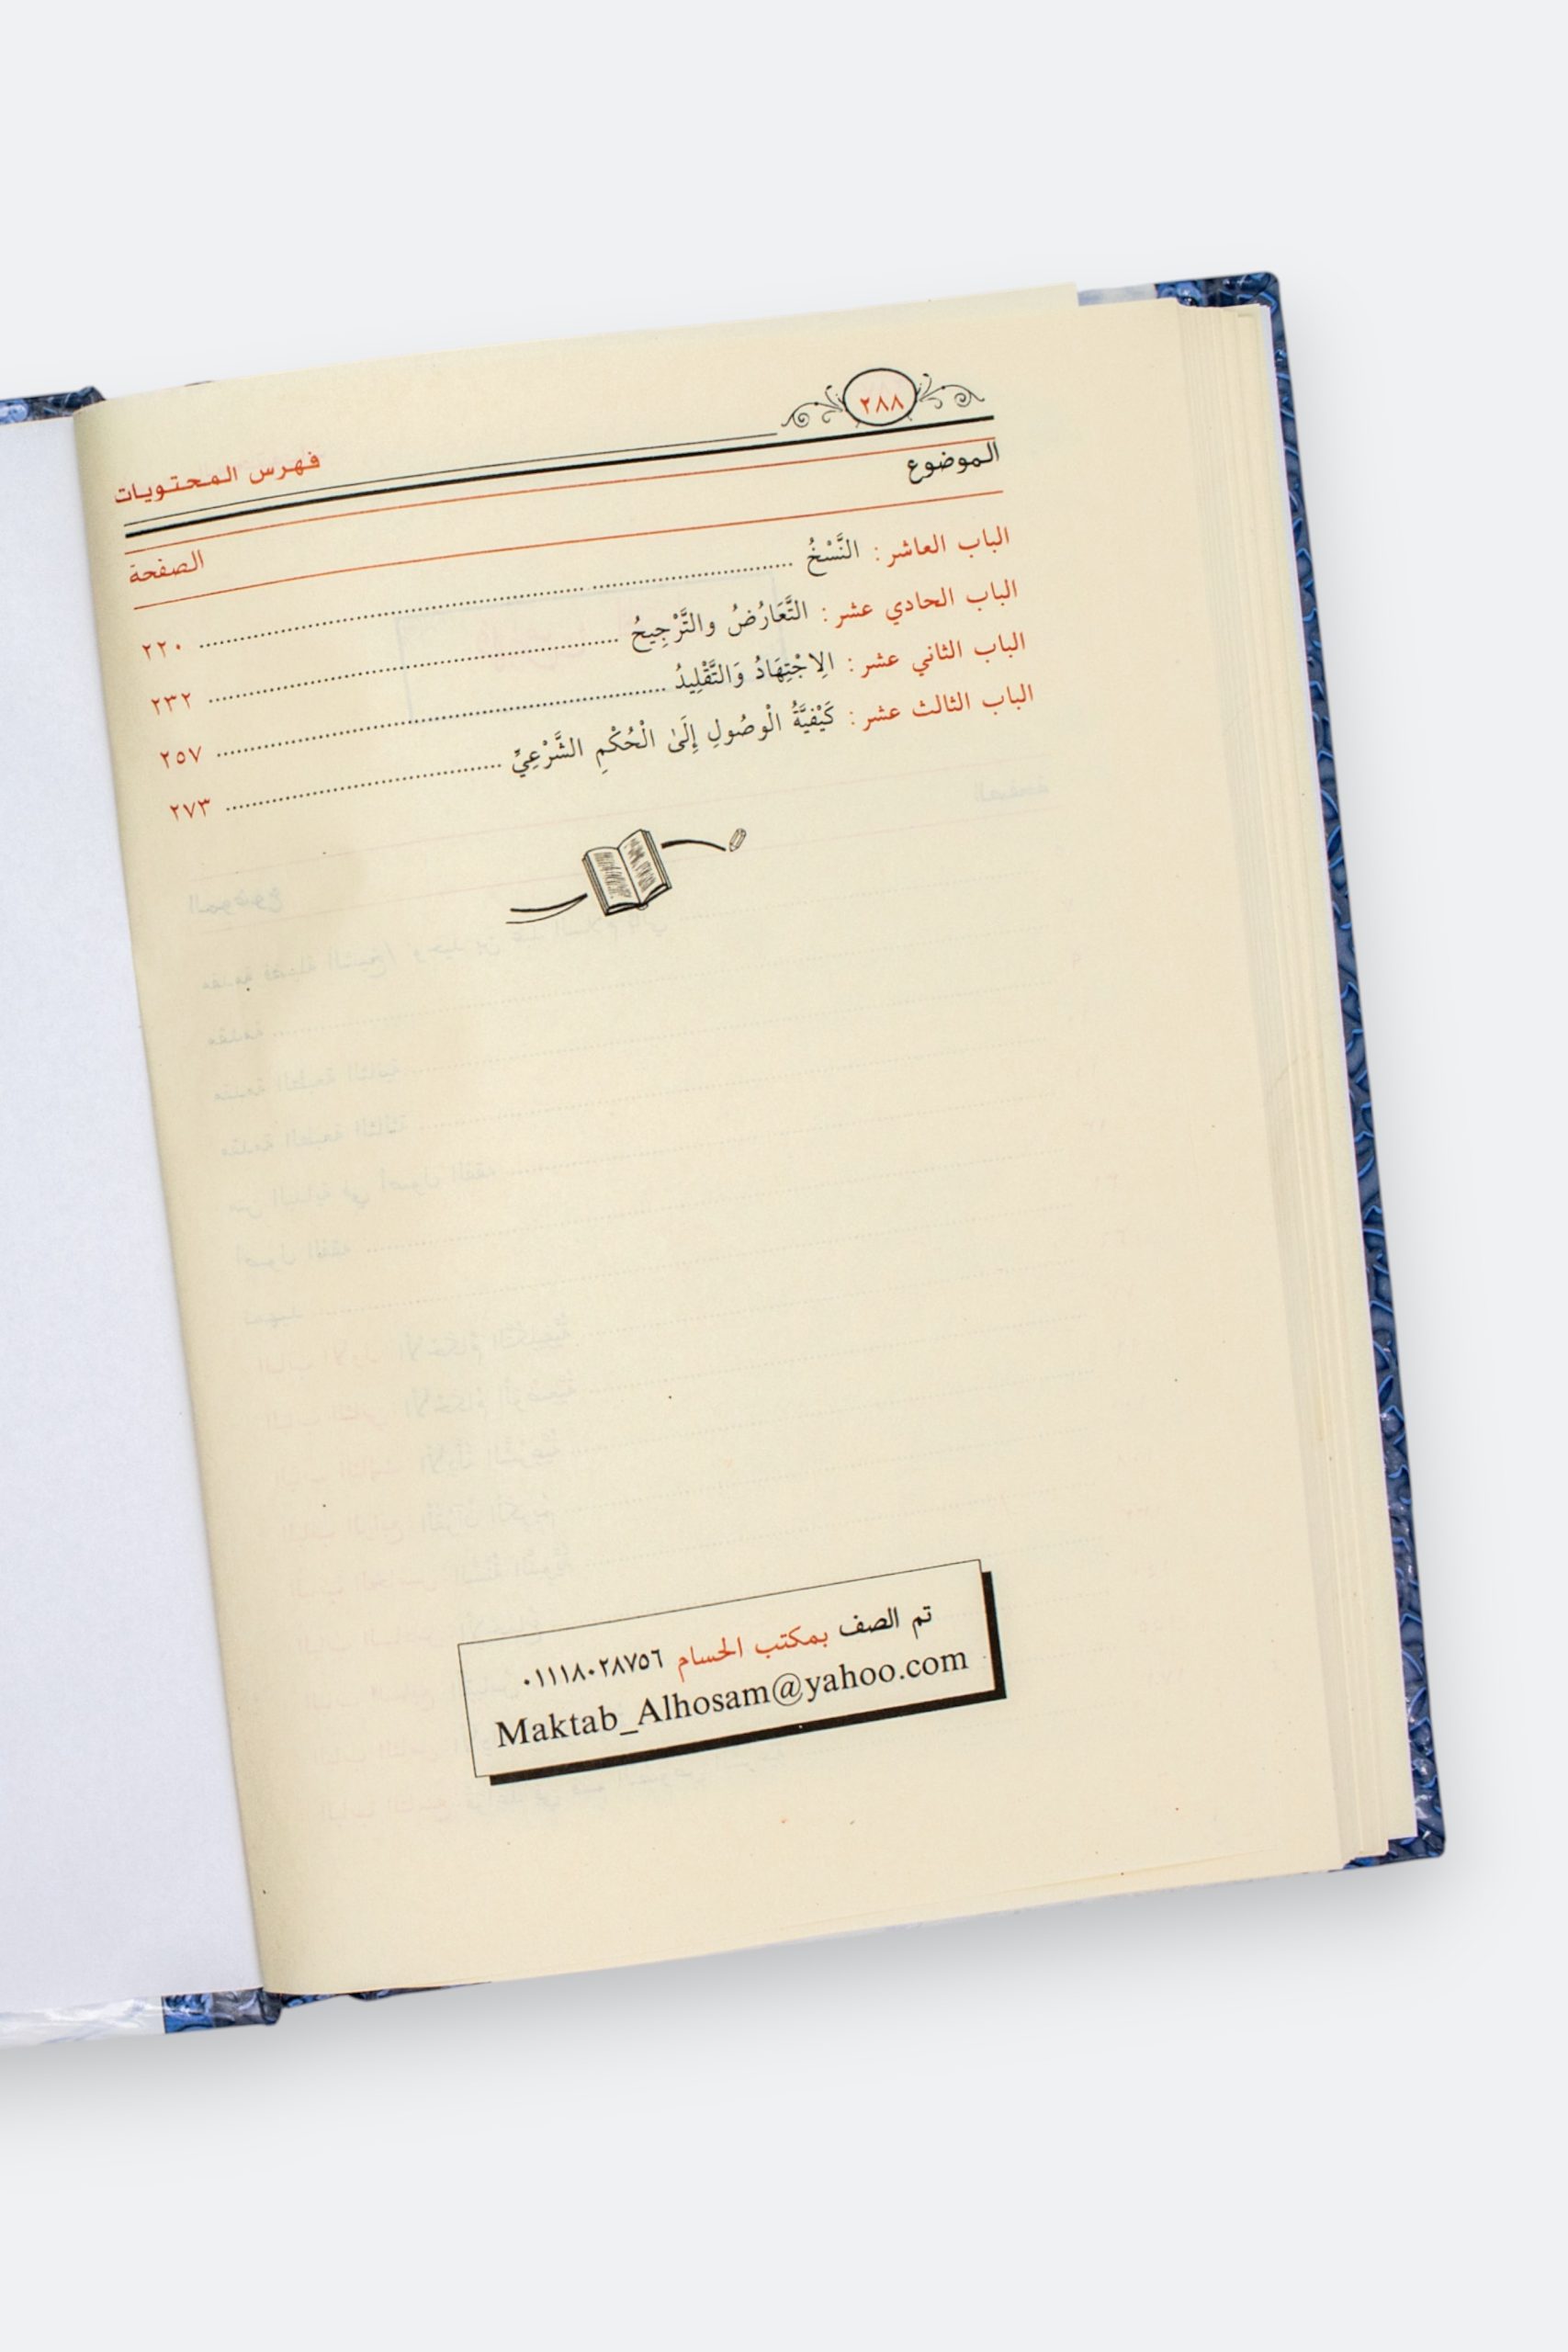 ٢٨٨
فهرس المحتويات
الموضوع
الصفحة
الباب العاشر : النَّسْخُ ........ ٢٢٠
الباب الحادي عشر : التَّعَارُضُ والتَّرْجِيحُ ........ ٢٣٢
الباب الثاني عشر : الِاجْتِهَادُ وَالتَّقْلِيدُ ........ ٢٥٧
الباب الثالث عشر : كَيْفيَّةُ الْوصُولِ إِلَىٰ الْحُكْمِ الشَّرْعِيِّ ........ ٢٧٣
تم الصف بمكتب الحسام ٠١١١٨٠٢٨٧٥٦
Maktab_Alhosam@yahoo.com